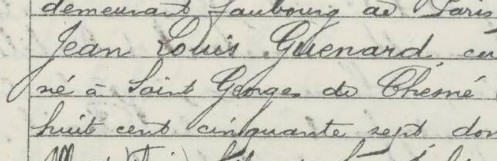 demeurant faubourg de Paris
Jean Louis Guenard, cu
né à Saint Georges de Chesné
huit cent cinquante sept dom